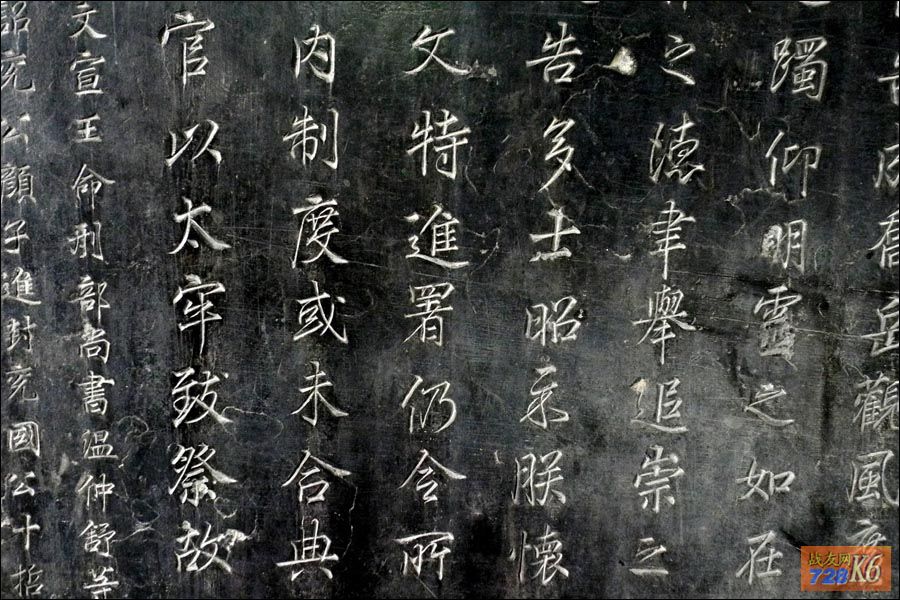 成喬岳觀風
躅仰明靈之如在
之德聿舉追崇之
告多士昭示朕懷
文特進署仍令所
内制度或未合典
官以太牢致祭故
文宣王命刑部尚書溫仲舒等
詔兖公顏子進封兖國公十哲
战友网
728
K6